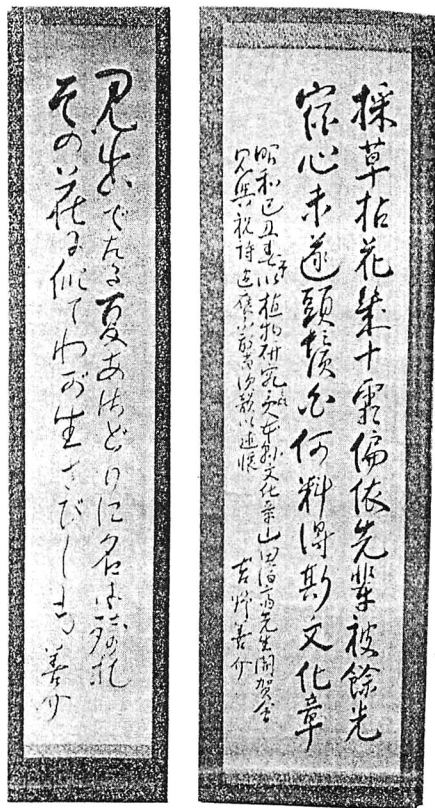 採草拈花幾十霜偏依先輩被餘光
宿心未遂頭鬚白何料得斯文化章
昭和己丑春予以植物研究 文化章山田 先生開賀会
見興祝詩 次韻以述懐
吉野善介
見出でたる夏あさどりに名は残れ
その花に似てわが生さびしも
善介